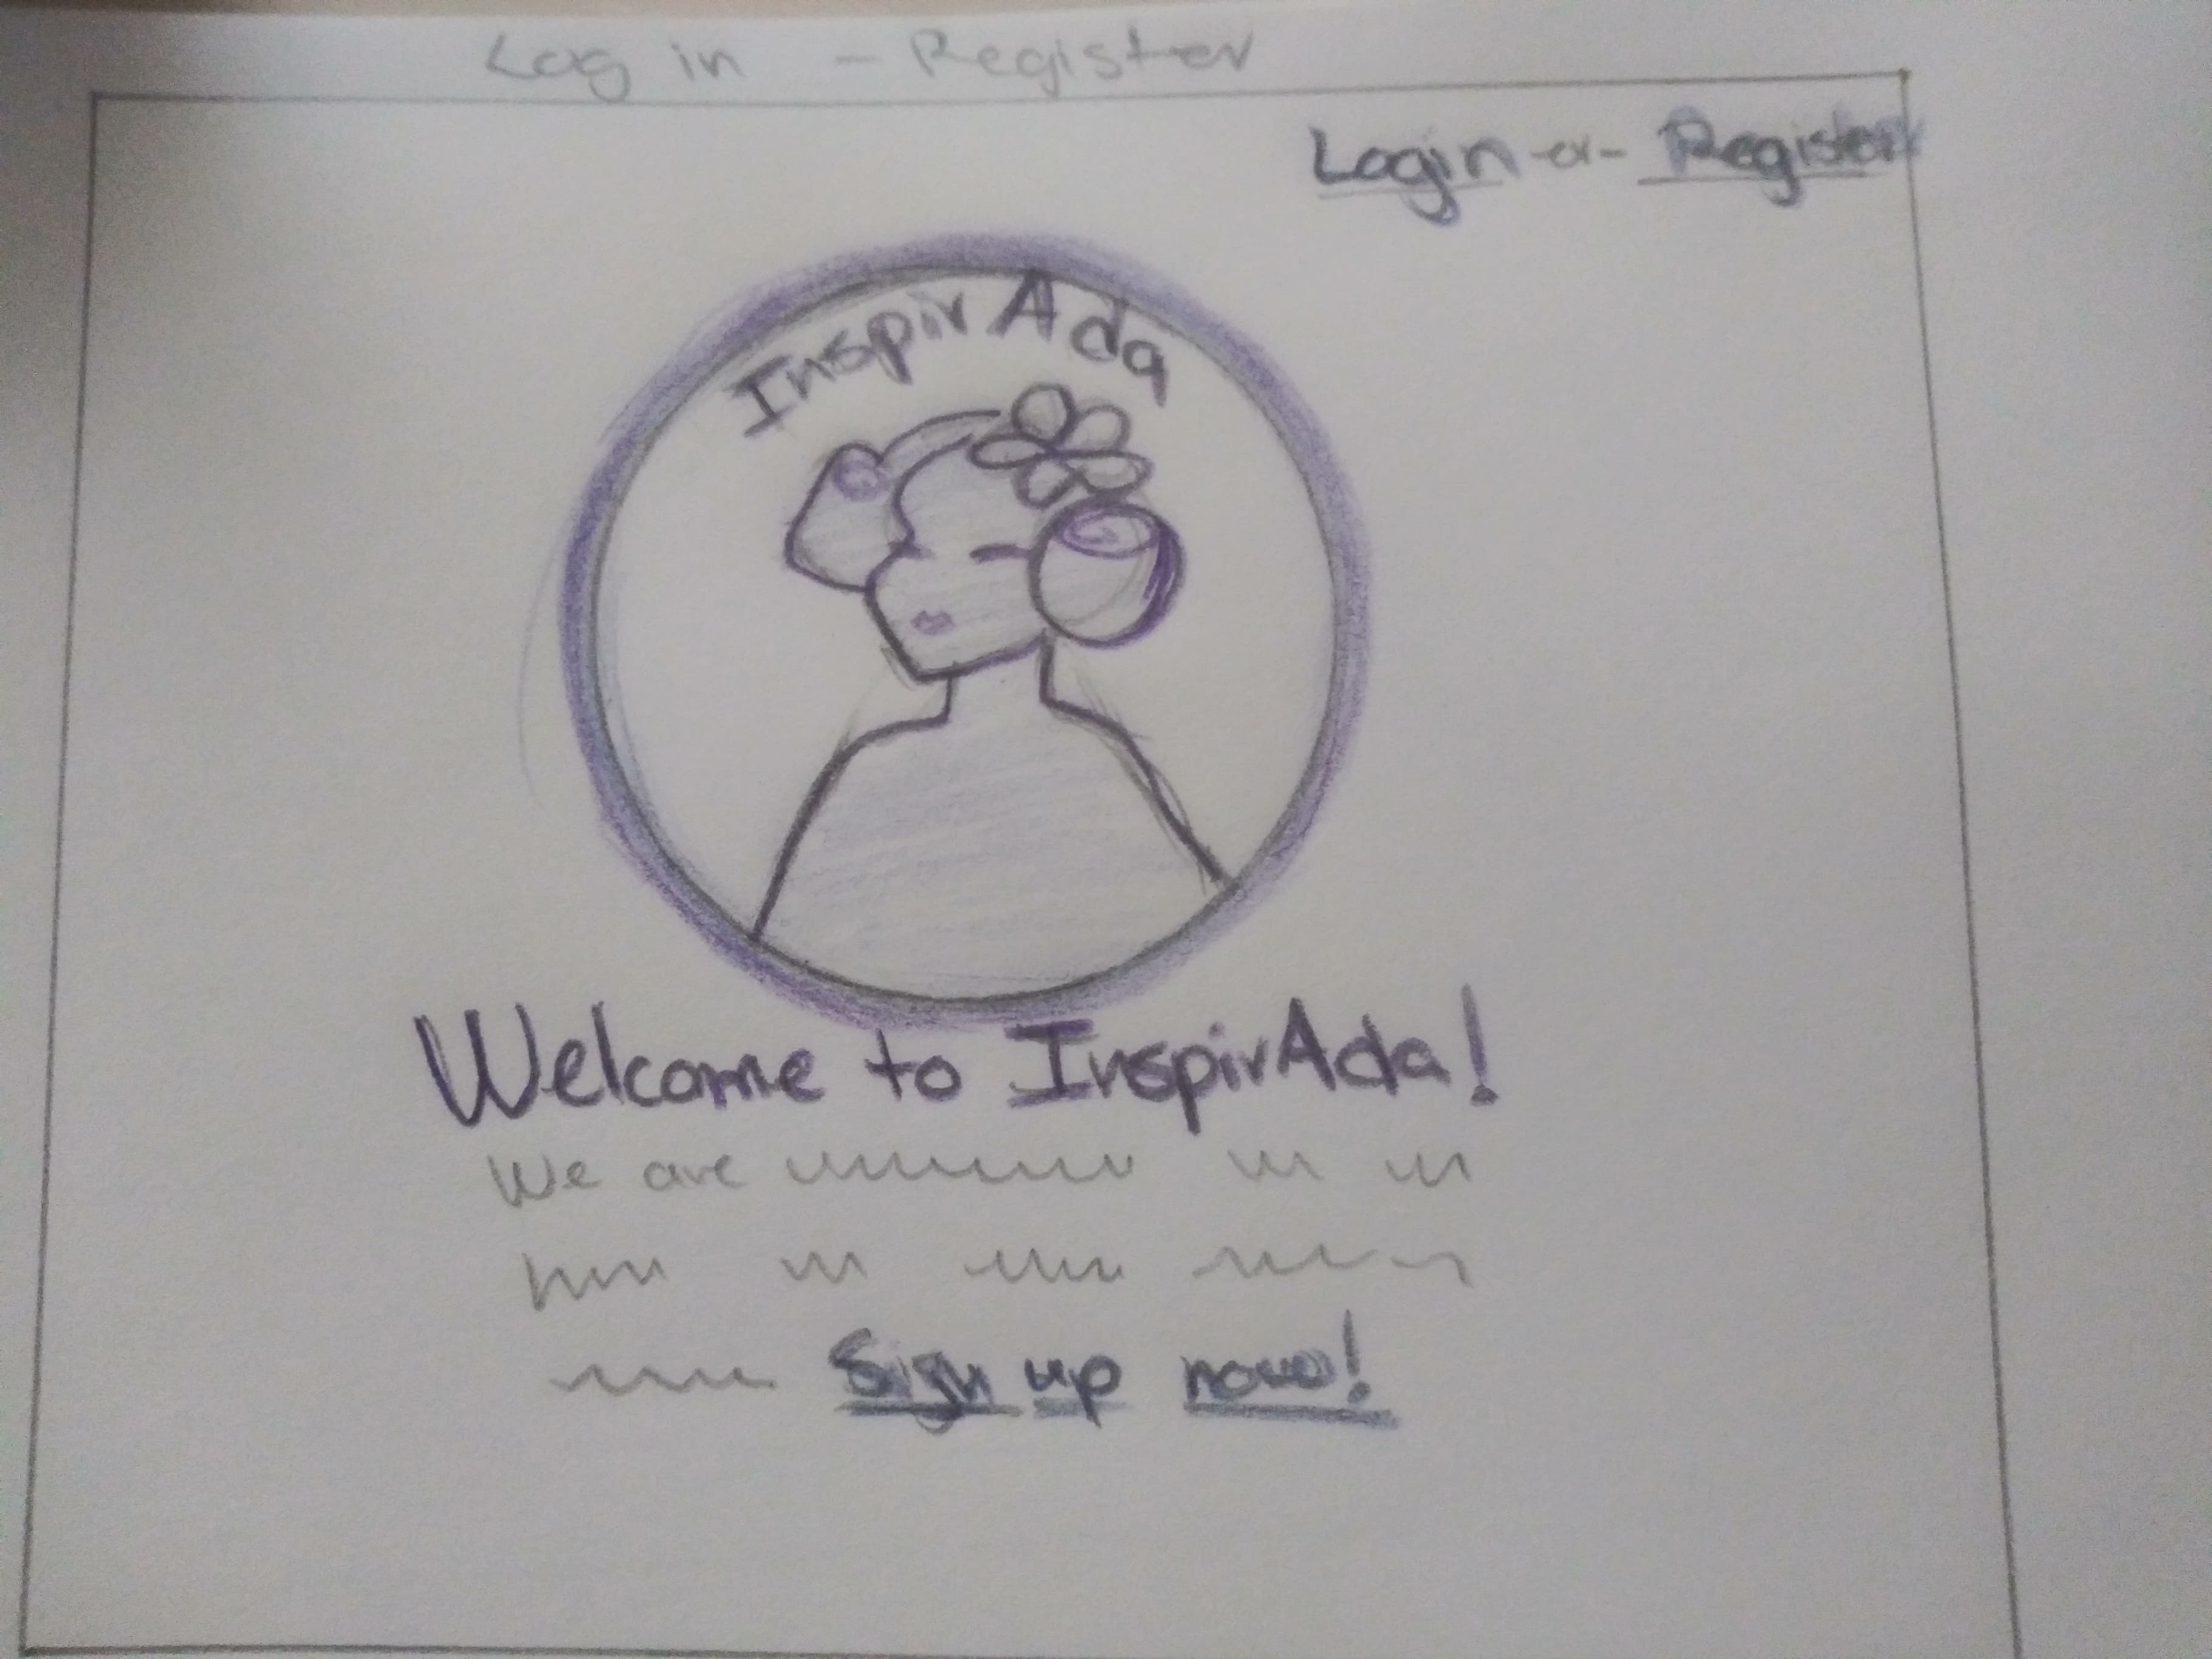 Log in - Register
Login -or- Register
InspirAda
Welcome to InspirAda!
We are
Sign up now!